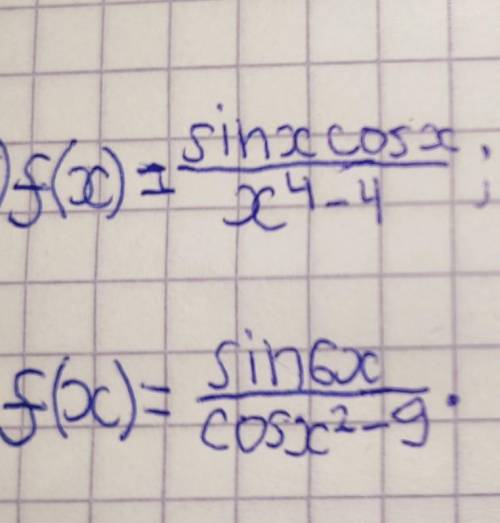 ) f(x) = sinx cosx / x⁴ - 4 ;
f(x) = sin6x / cosx² - 9 .